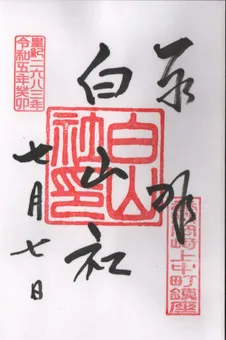 奉拝
白山社
七月七日
皇紀二六八三年
令和五年癸卯
白山社印
崎上中町鎮座